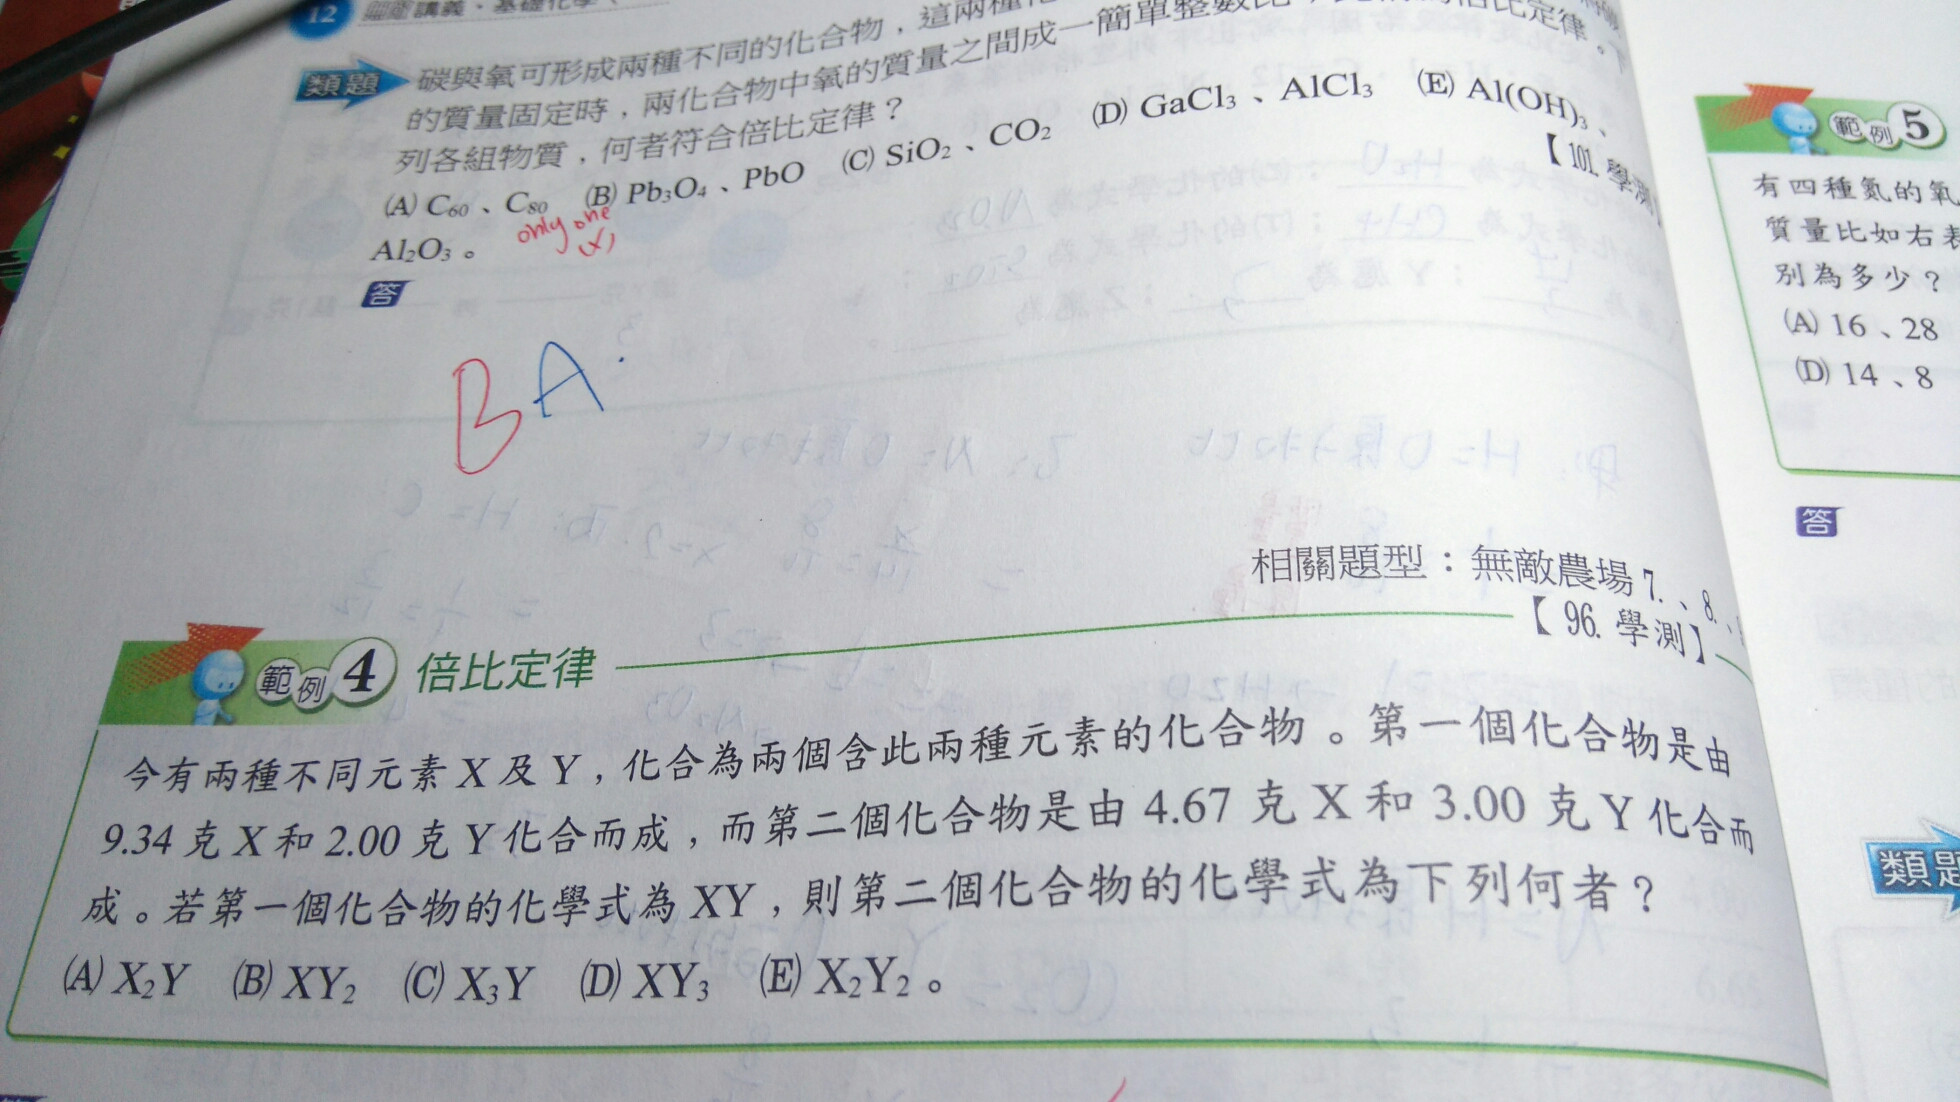 12 講義、基礎化學
類題 碳與氧可形成兩種不同的化合物，這兩種化
的質量固定時，兩化合物中氧的質量之間成一簡單整數比，
倍比定律。下
列各組物質，何者符合倍比定律？
(A) C₆₀、C₈₀ (B) Pb₃O₄、PbO (C) SiO₂、CO₂ (D) GaCl₃、AlCl₃ (E) Al(OH)₃、
Al₂O₃。
【101. 學測】
only one
(x)
答
B A.
相關題型：無敵農場 7.、8.、
【96. 學測】
範例 4 倍比定律
今有兩種不同元素 X 及 Y，化合為兩個含此兩種元素的化合物。第一個化合物是由
9.34 克 X 和 2.00 克 Y 化合而成，而第二個化合物是由 4.67 克 X 和 3.00 克 Y 化合而
成。若第一個化合物的化學式為 XY，則第二個化合物的化學式為下列何者？
(A) X₂Y (B) XY₂ (C) X₃Y (D) XY₃ (E) X₂Y₂。
範例 5
有四種氮的氧
質量比如右表
別為多少？
(A) 16、28
(D) 14、8
答
類題